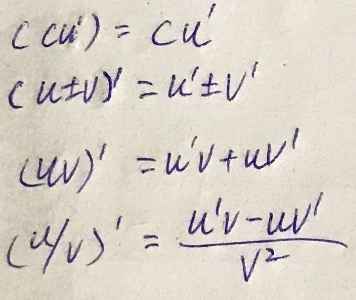 (cu') = cu'
(u±v)' = u'±v'
(uv)' = u'v+uv'
(u/v)' = \frac{u'v-uv'}{v²}